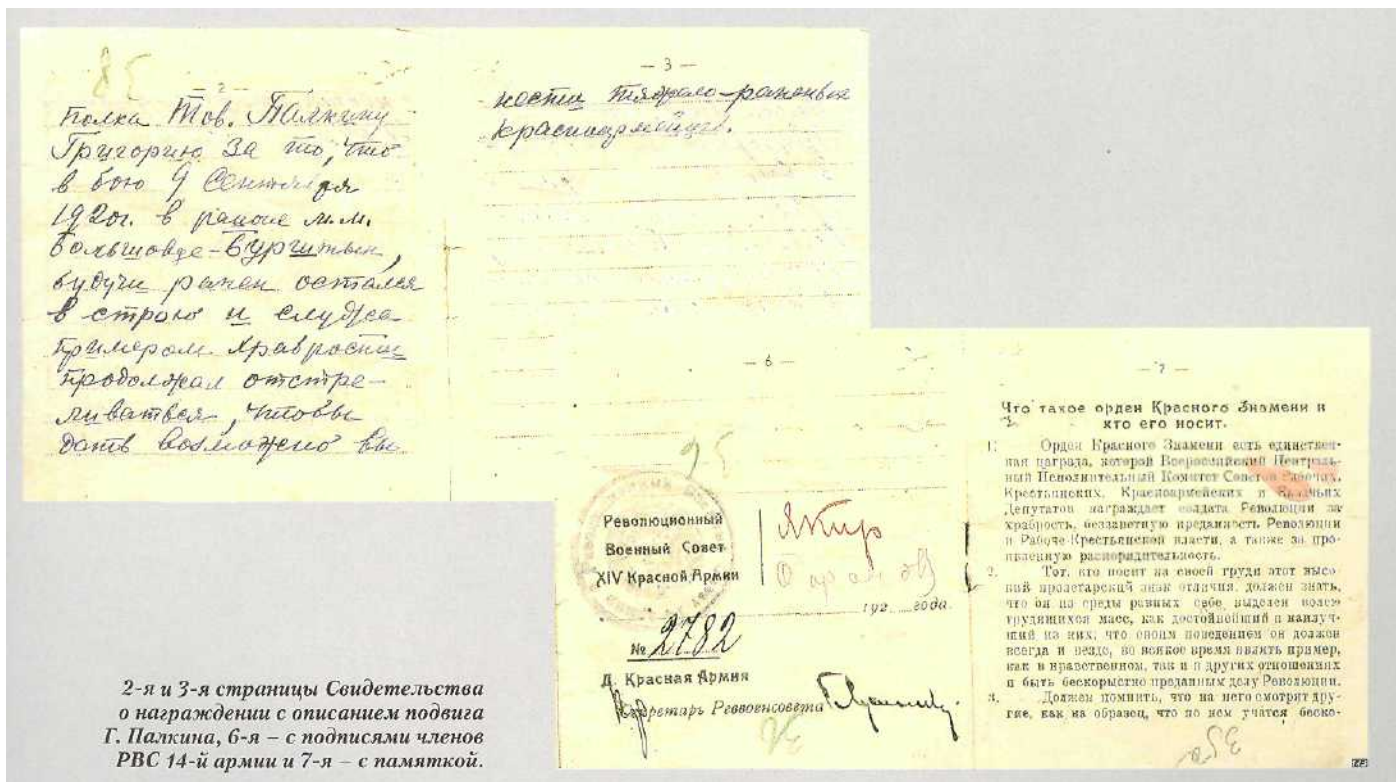 — 2 —
полка Тов. Палкину
Григорию За то, что
в бою 9 Сентября
1920г. в районе м.м.
Большовце-Бурштын,
будучи ранен остался
в строю и служа
примером храбрости
продолжал отстре-
ливаться, чтобы
дать возможно вы
— 3 —
нести тяжело-раненые
красноармейцы.
— 6 —
Революционный
Военный Совет
XIV Красной Армии
Якир
192 года.
№ 2782
Д. Красная Армия
Секретарь Реввоенсовета
— 7 —
Что такое орден Красного Знамени и
кто его носит.
1. Орден Красного Знамени есть единствен-
ная награда, которой Всероссийский Централь-
ный Исполнительный Комитет Советов Рабочих,
Крестьянских, Красноармейских и Казачьих
Депутатов награждает солдата Революции за
храбрость, беззаветную преданность Революции
и Рабоче-Крестьянской власти, а также за про-
явленную распорядительность.
2. Тот, кто носит на своей груди этот высо-
кий пролетарский знак отличия, должен знать,
что он из среды равных себе выделен волею
трудящихся масс, как достойнейший и наилуч-
ший из них; что своим поведением он должен
всегда и везде, во всякое время являть пример,
как в нравственном, так и в других отношениях
и быть бескорыстно преданным делу Революции.
3. Должен помнить, что на него смотрят дру-
гие, как на образец, что по нем учатся беско-
2-я и 3-я страницы Свидетельства
о награждении с описанием подвига
Г. Палкина, 6-я – с подписями членов
РВС 14-й армии и 7-я – с памяткой.